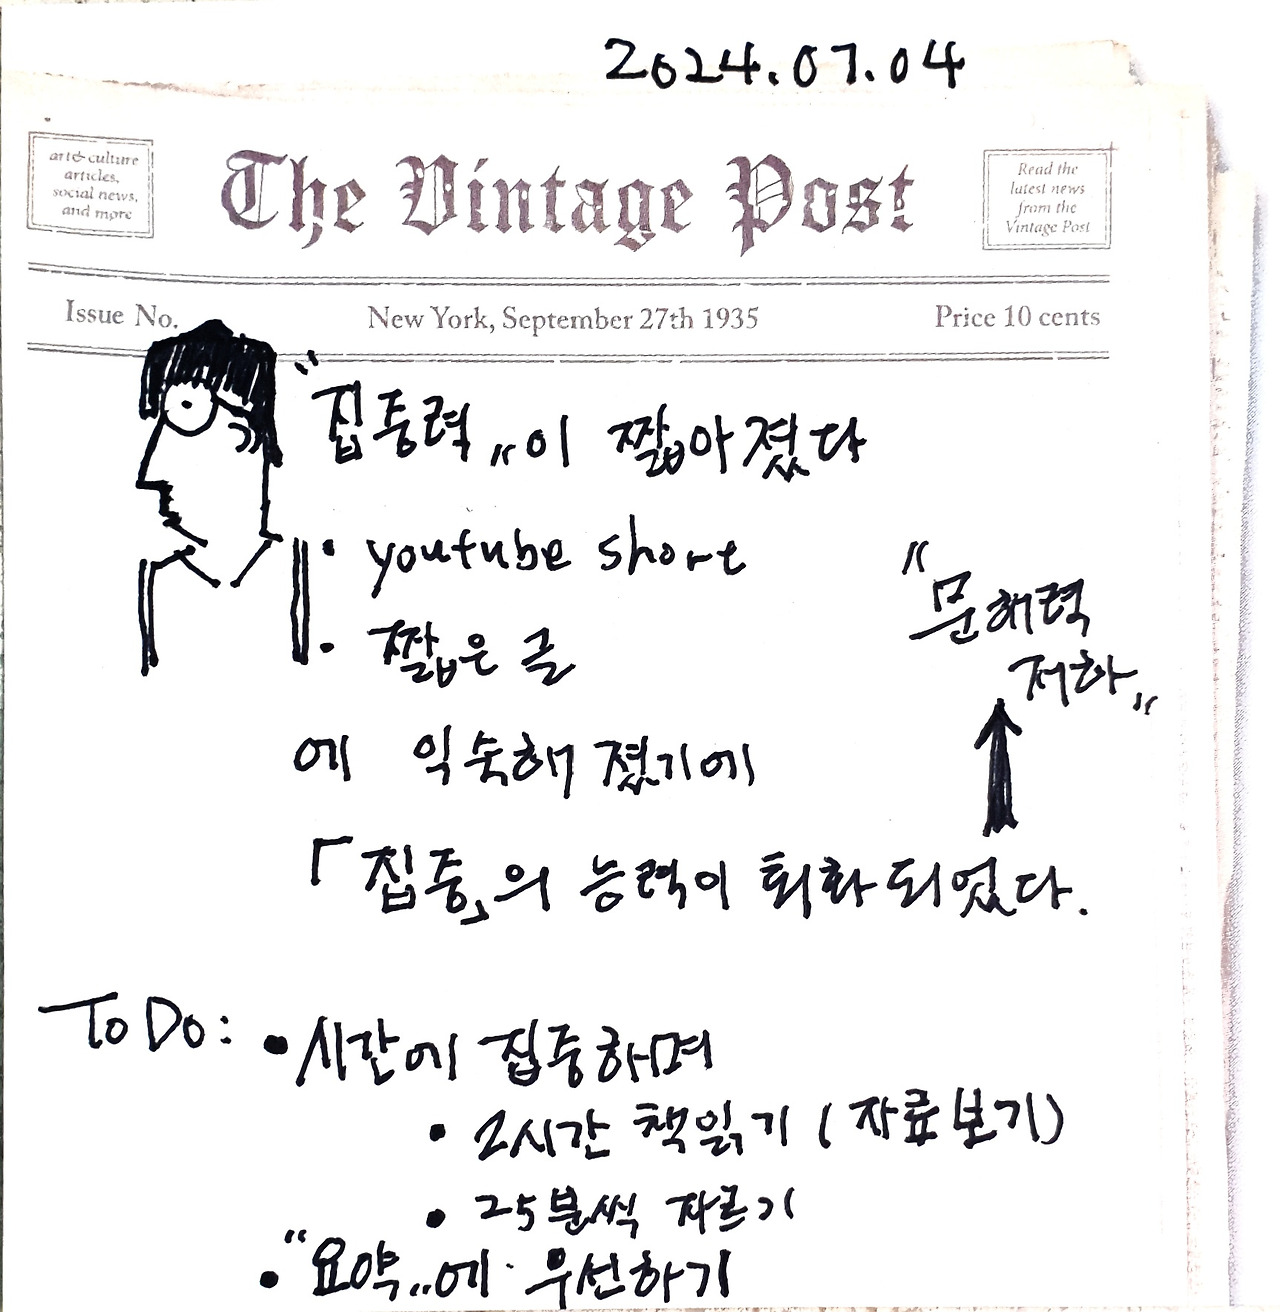 2024.07.04
art & culture
articles,
social news,
and more
The Vintage Post
Read the
latest news
from the
Vintage Post
Issue No.
New York, September 27th 1935
Price 10 cents
"집중력"이 짧아졌다
• youtube short
• 짧은 글
"문해력
저하"
에 익숙해 졌기에
「집중」의 능력이 퇴화 되었다.
To Do: • 시간에 집중하며
• 2시간 책읽기 (자료보기)
• 25분씩 자르기
• "요약"에 우선하기